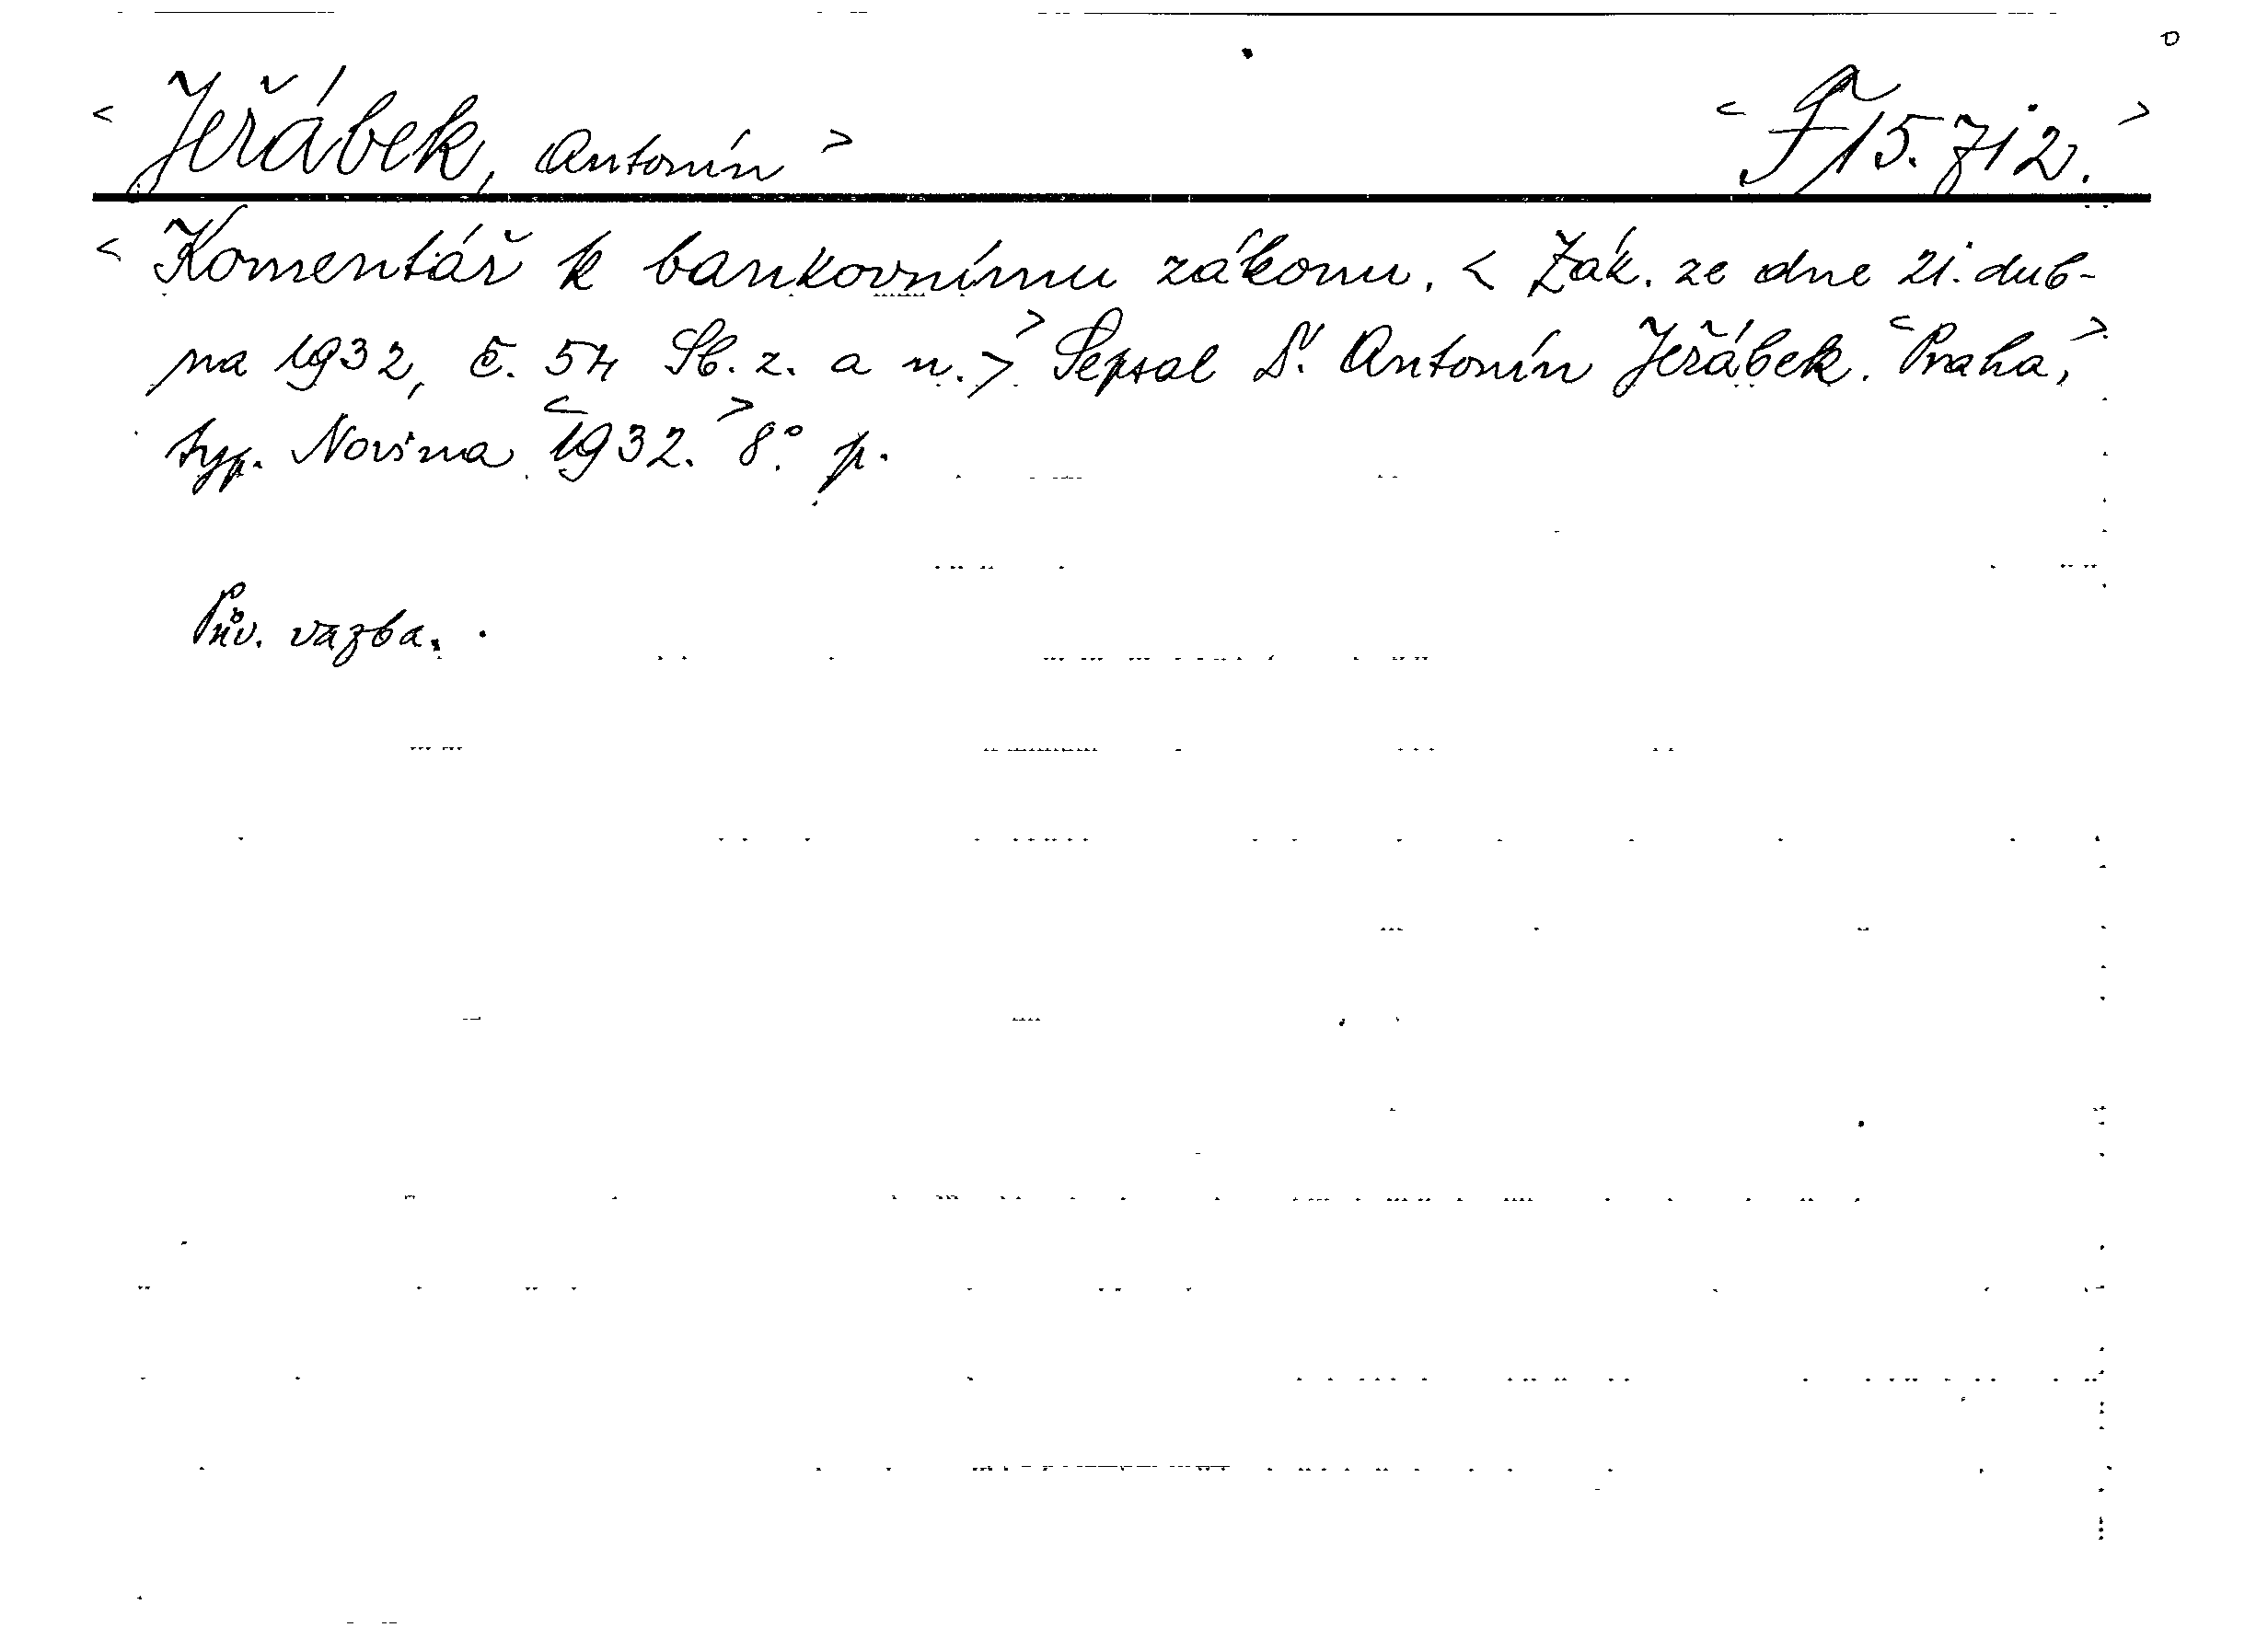 < Jeřábek, Antonín > < F 15.712. >
< Komentář k bankovnímu zákonu. < Zák. ze dne 21. dub-
na 1932, č. 54 Sb. z. a n. > > Sepsal Dr. Antonín Jeřábek. < Praha, >
typ. Novina < 1932. > 8°. p.
Pův. vazba.